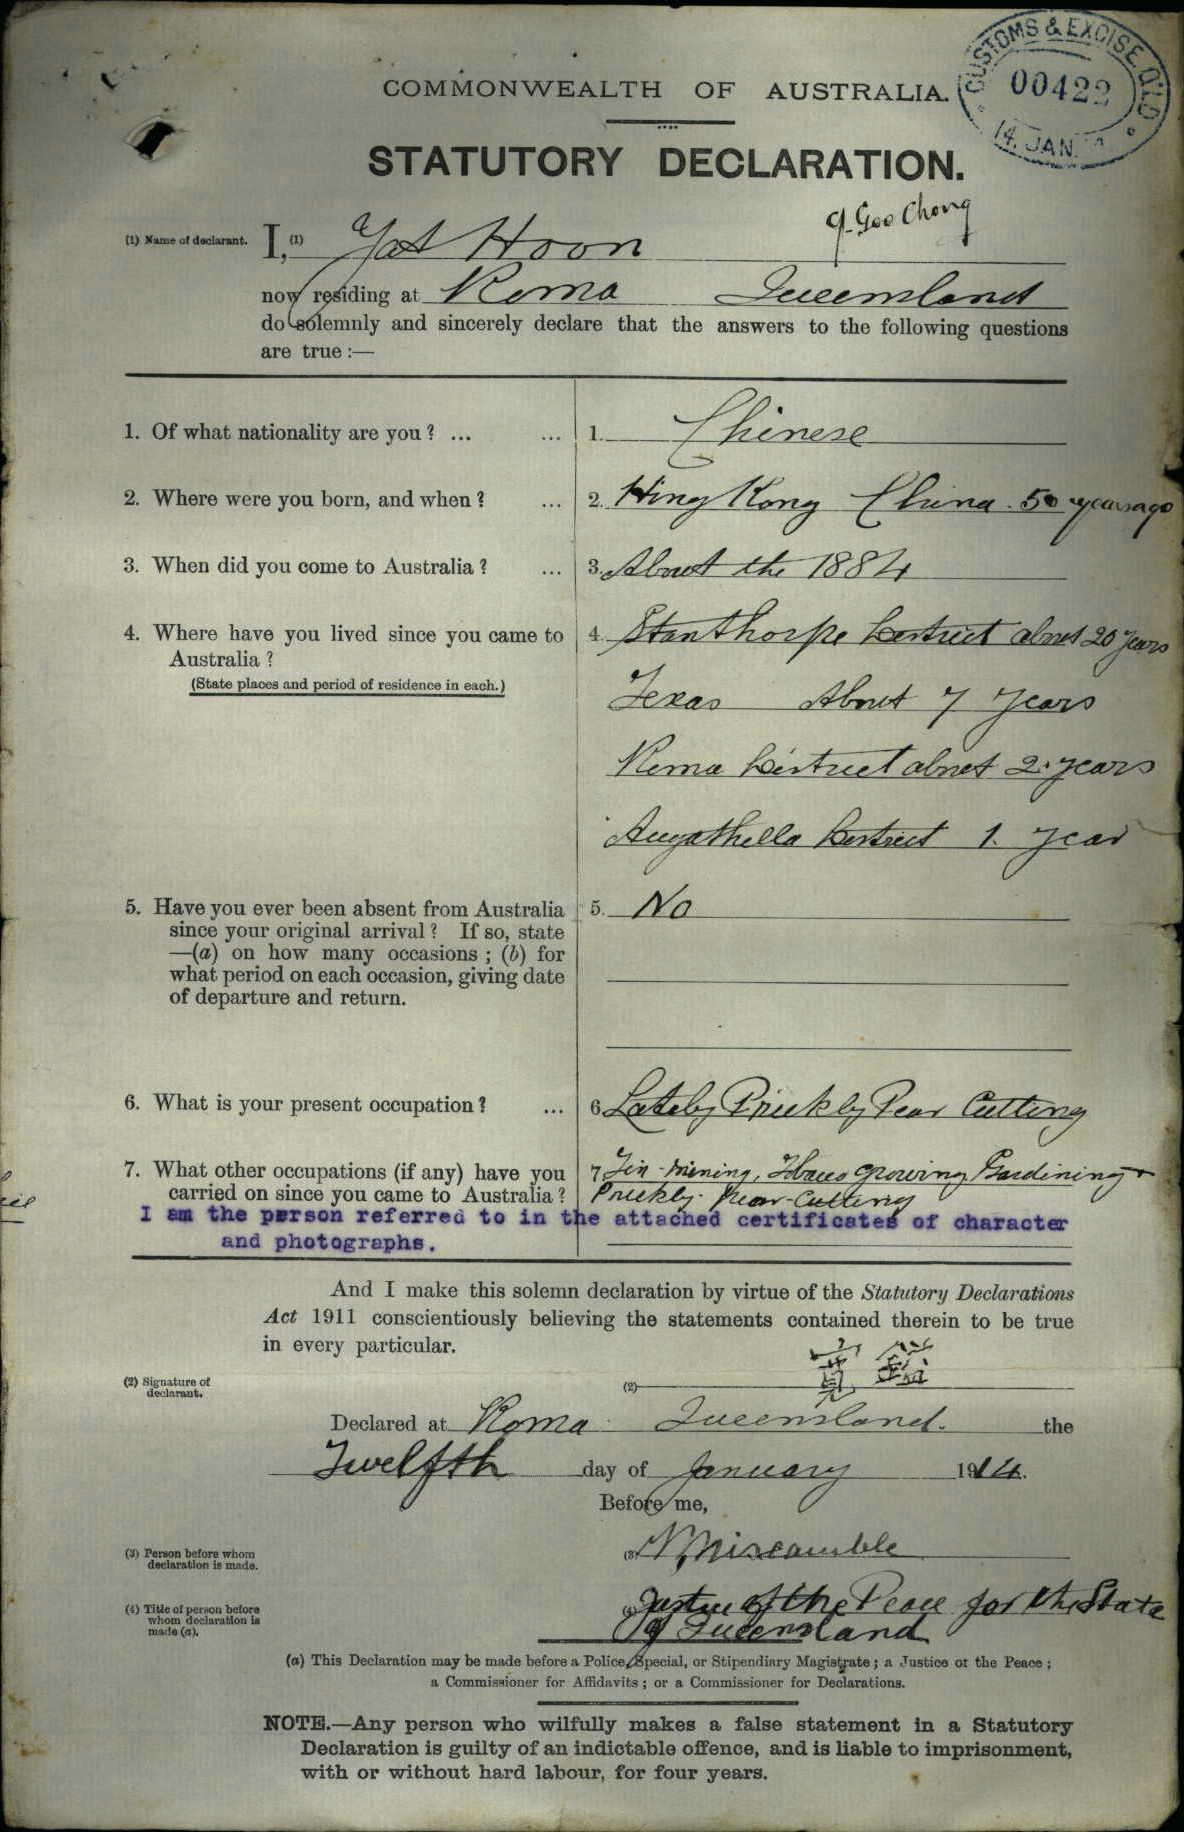 COMMONWEALTH OF AUSTRALIA.
CUSTOMS & EXCISE. QLD
00422
14. JAN.
STATUTORY DECLARATION.
G. Goo Chong
(1) Name of declarant. I, (1) Yat Hoon
now residing at Roma Queensland
do solemnly and sincerely declare that the answers to the following questions
are true :—
1. Of what nationality are you ? ... ... 1. Chinese
2. Where were you born, and when ? ... 2. Hing Kong China. 50 years ago
3. When did you come to Australia ? ... 3. About the 1884
4. Where have you lived since you came to 4. Stanthorpe District about 20 years
Australia ?
(State places and period of residence in each.)
Texas About 7 years
Roma District about 2. years
Augathella District 1. year
5. Have you ever been absent from Australia 5. No
since your original arrival ? If so, state
—(a) on how many occasions ; (b) for
what period on each occasion, giving date
of departure and return.
6. What is your present occupation ? ... 6. Lately Prickly Pear Cutting
7. What other occupations (if any) have you 7. Tin-mining, Tobaco growing Gardining +
carried on since you came to Australia ? Prickly-Pear-Cutting
I am the person referred to in the attached certificates of character
and photographs.
And I make this solemn declaration by virtue of the Statutory Declarations
Act 1911 conscientiously believing the statements contained therein to be true
in every particular.
(2) Signature of
declarant.
(2)
Declared at Roma Queensland. the
Twelfth day of January 1914.
Before me,
(3) Person before whom
declaration is made.
(3) N. Miscamble
(4) Title of person before
whom declaration is
made (a).
(4) Justice of the Peace for the State
of Queensland
(a) This Declaration may be made before a Police, Special, or Stipendiary Magistrate ; a Justice of the Peace ;
a Commissioner for Affidavits ; or a Commissioner for Declarations.
NOTE.—Any person who wilfully makes a false statement in a Statutory
Declaration is guilty of an indictable offence, and is liable to imprisonment,
with or without hard labour, for four years.